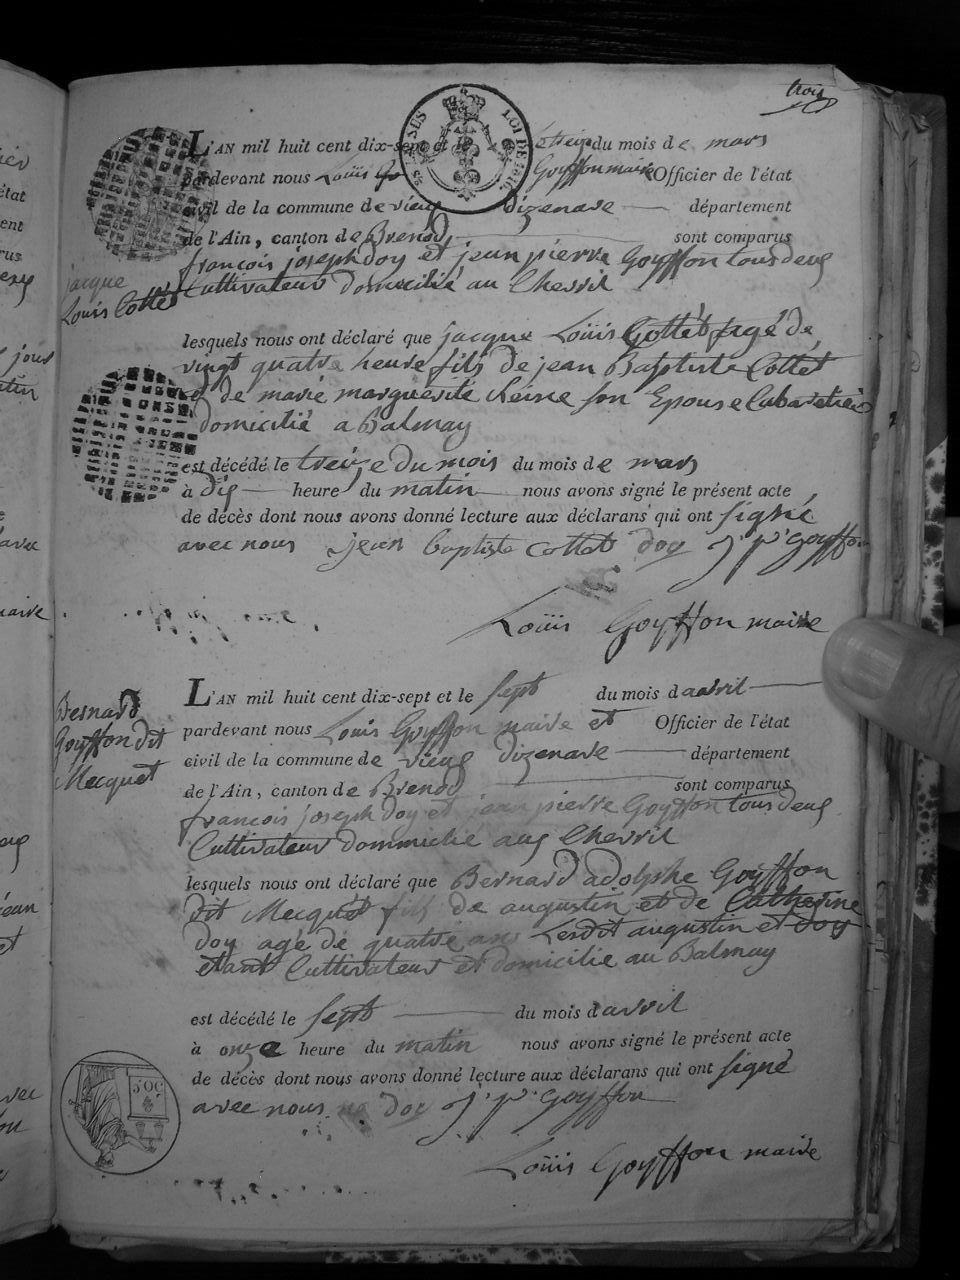 trois
L'AN mil huit cent dix-sept et le treize du mois de mars
pardevant nous Louis Goyffon maire Officier de l'état
civil de la commune de vieux dizenave département
de l'Ain, canton de Brenod sont comparus
françois joseph Doy et jean pierre Goyffon tous deux
Cultivateur domicilié au Chevril
jacque
Louis Cottet
lesquels nous ont déclaré que jacque Louis Cottet agé de
vingt quatre heure fils de jean Baptiste Cottet
et de marie marguerite Reine son Epouse Cabaretier
domicilié a Balmay
est décédé le treize du mois du mois de mars
à dix heure du matin nous avons signé le présent acte
de décès dont nous avons donné lecture aux déclarans qui ont signé
avec nous jean baptiste cottet doy j p Goyffon
Louis Goyffon maire
Bernard
Goyffon dit
Mecquet
L'AN mil huit cent dix-sept et le sept du mois d avril
pardevant nous Louis Goyffon maire et Officier de l'état
civil de la commune de vieux dizenave département
de l'Ain, canton de Brenod sont comparus
francois joseph Doy et jean pierre Goyffon tous deux
Cultivateur dommicilie aux Chevril
lesquels nous ont déclaré que Bernard adolphe Goyffon
dit Mecquet fils de augustin et de Catherine
doy agé de quatre ans Lesdit augustin et Doy
etant Cultivateur et domicilie au Balmay
est décédé le sept du mois d avril
à onze heure du matin nous avons signé le présent acte
de décès dont nous avons donné lecture aux déclarans qui ont signé
avec nous doy j p Goyffon
Louis Goyffon maire